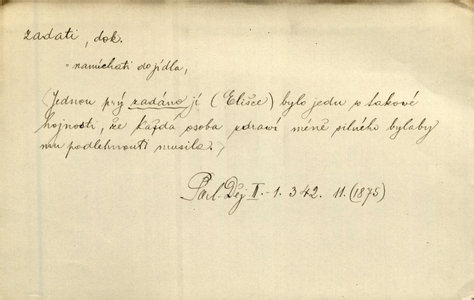 zadati, dok.
namíchati do jídla,
Jednou prý zadáno jí (Elišce) bylo jedu v takové
hojnosti, že každá osoba zdraví méně silného bylaby
mu podlehnouti musila.
Pal. Děj. II.-1. 342. 11. (1875)